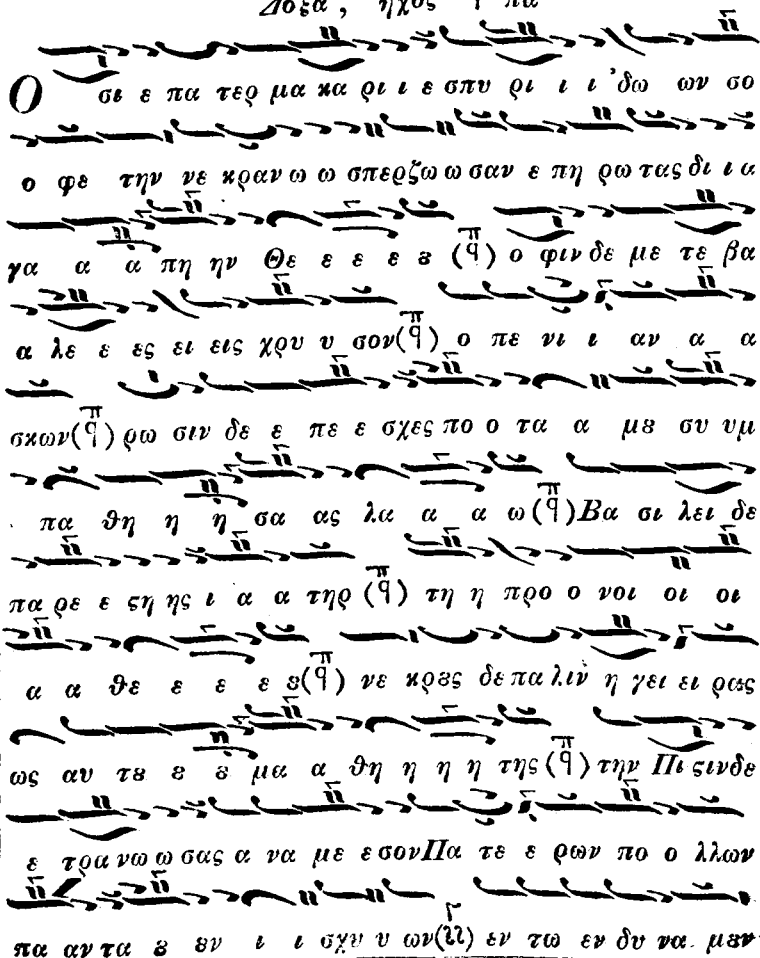 Δοξα, ηχος πα
Ο σι ε πα τερ μα κα ρι ι ε σπυ ρι ι ι δω ων σο
ο φε την νε κραν ω ω σπερζω ω σαν ε πη ρω τας δι ι α
γα α α πη ην Θε ε ε ε ȣ (π̈ q) ο φιν δε με τε βα
α λε ε ες ει εις χρυ υ σον (π q) ο πε νι ι αν α α
σκων (π q) ρω σιν δε ε πε ε σχες πο ο τα α μȣ συ υμ
πα θη η η σα ας λα α α ω (π q) Βα σι λει δε
πα ρε ε ςη ης ι α α τηρ (π q) τη η προ ο νοι οι οι
α α θε ε ε ε ȣ (π q) νε κρȣς δε πα λιν η γει ει ρας
ως αυ τȣ ȣ ȣ μα α θη η η η της (π q) την Πι ςιν δε
ε τρα νω ω σας α να με ε σον Πα τε ε ρων πο ο λλων
πα αν τα ȣ ȣν ι ι σχυ υ ων εν τω εν δυ να μȣν